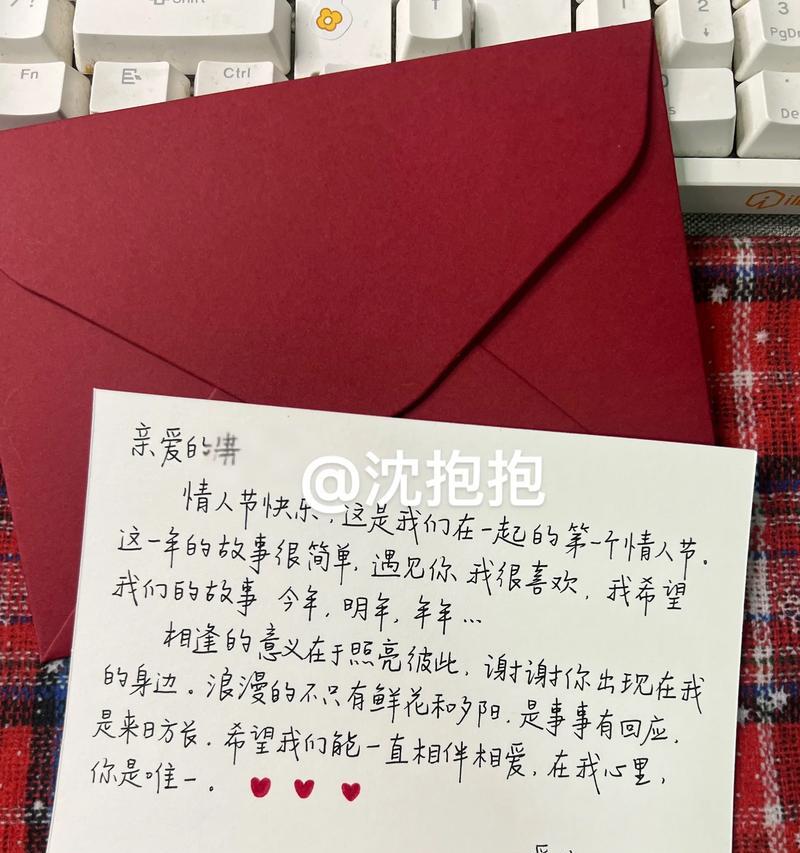 Shift
Fn
Ctrl
1
2
3
PgDn
De
@沈抱抱
亲爱的
情人节快乐，这是我们在一起的第一个情人节。
这一年的故事很简单，遇见你 我很喜欢，我希望
我们的故事 今年，明年，年年...
相逢的意义在于照亮彼此，谢谢你出现在我
的身边。浪漫的不只有鲜花和夕阳，是事事有回应，
是来日方长，希望我们能一直相伴相爱，在我心里，
你是唯一。